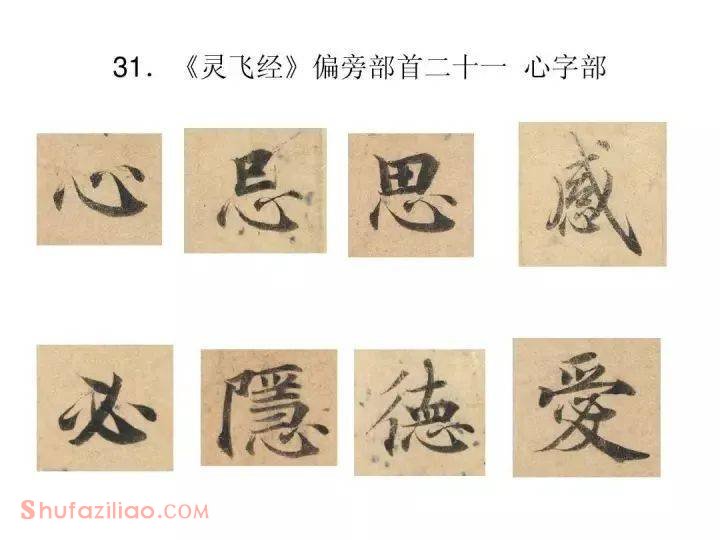 31. 《灵飞经》偏旁部首二十一 心字部
心 忌 思 感
必 隱 德 愛
Shufaziliao.COM